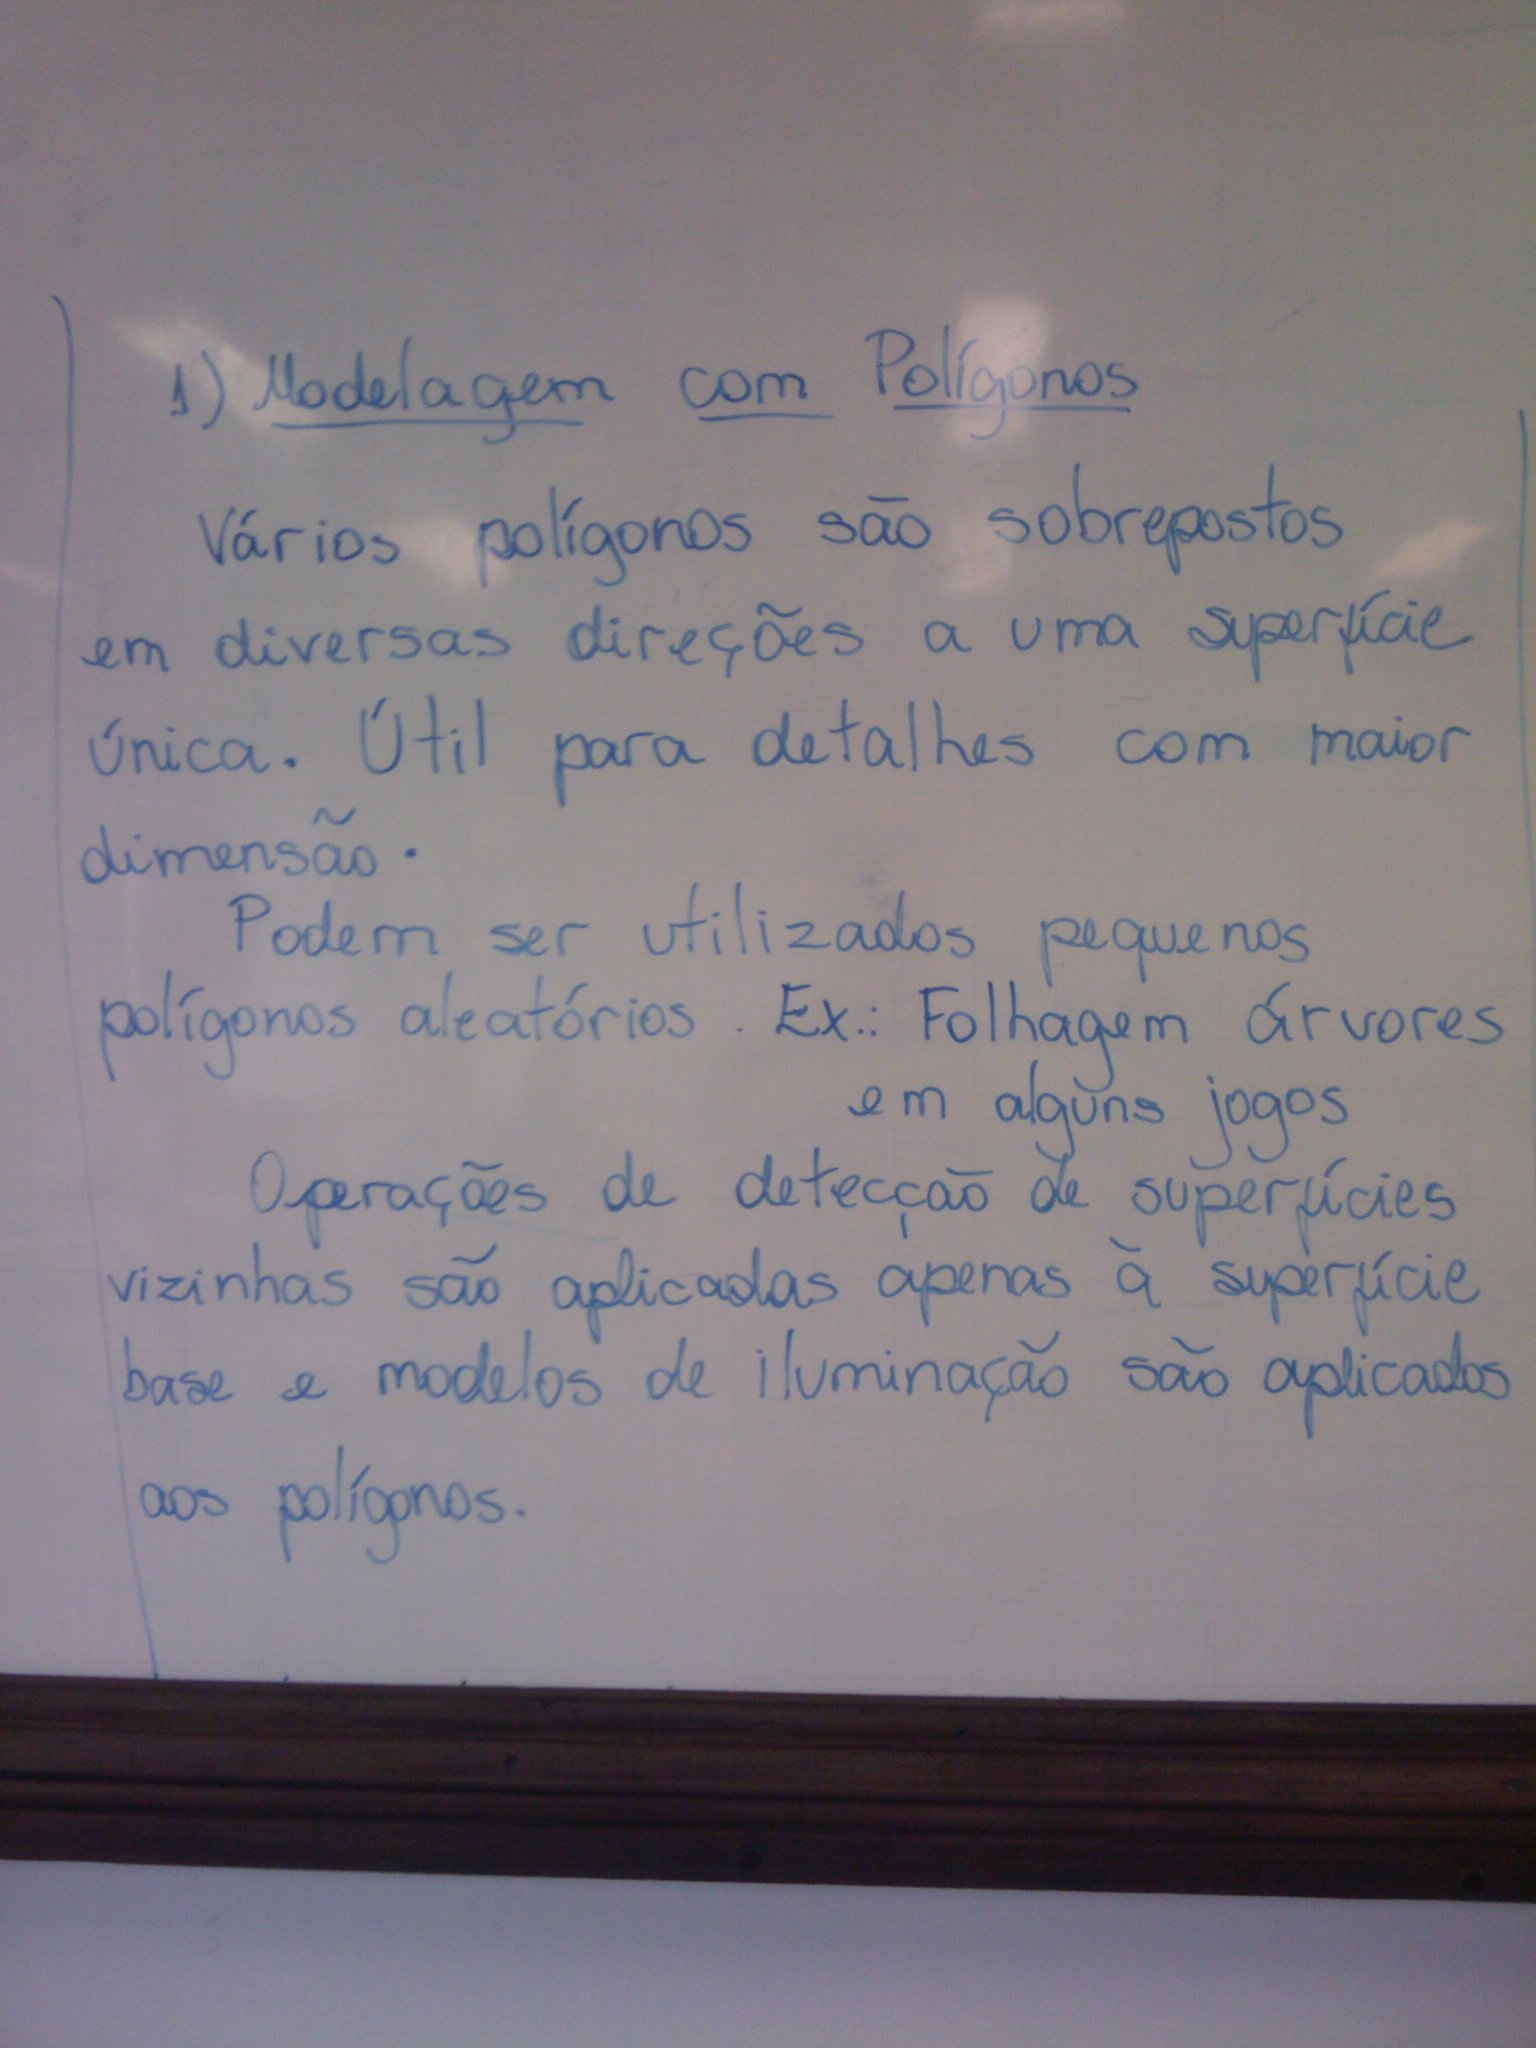 1) Modelagem com Polígonos
Vários polígonos são sobrepostos
em diversas direções a uma superfície
única. Útil para detalhes com maior
dimensão.
Podem ser utilizados pequenos
polígonos aleatórios. Ex.: Folhagem árvores
em alguns jogos
Operações de detecção de superfícies
vizinhas são aplicadas apenas à superfície
base e modelos de iluminação são aplicados
aos polígonos.